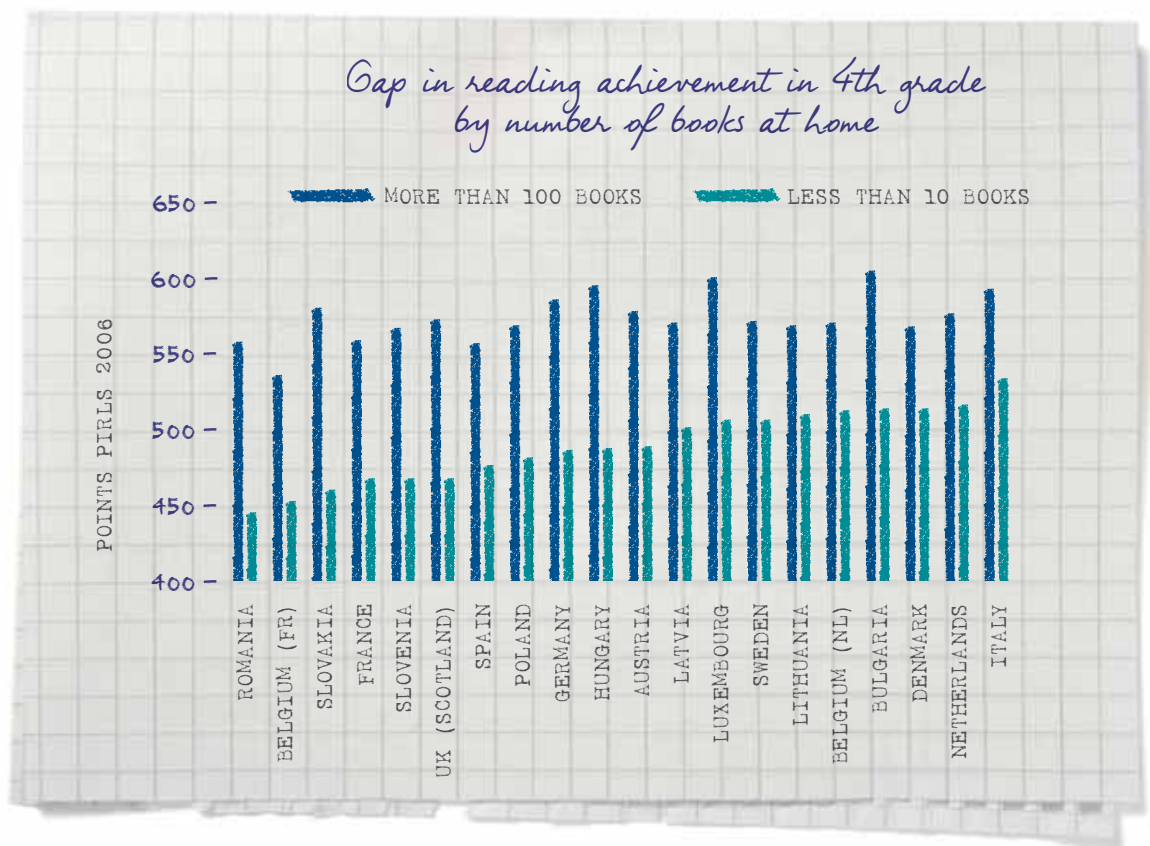 Gap in reading achievement in 4th grade
by number of books at home
MORE THAN 100 BOOKS
LESS THAN 10 BOOKS
650
600
550
500
450
400
POINTS PIRLS 2006
ROMANIA
BELGIUM (FR)
SLOVAKIA
FRANCE
SLOVENIA
UK (SCOTLAND)
SPAIN
POLAND
GERMANY
HUNGARY
AUSTRIA
LATVIA
LUXEMBOURG
SWEDEN
LITHUANIA
BELGIUM (NL)
BULGARIA
DENMARK
NETHERLANDS
ITALY